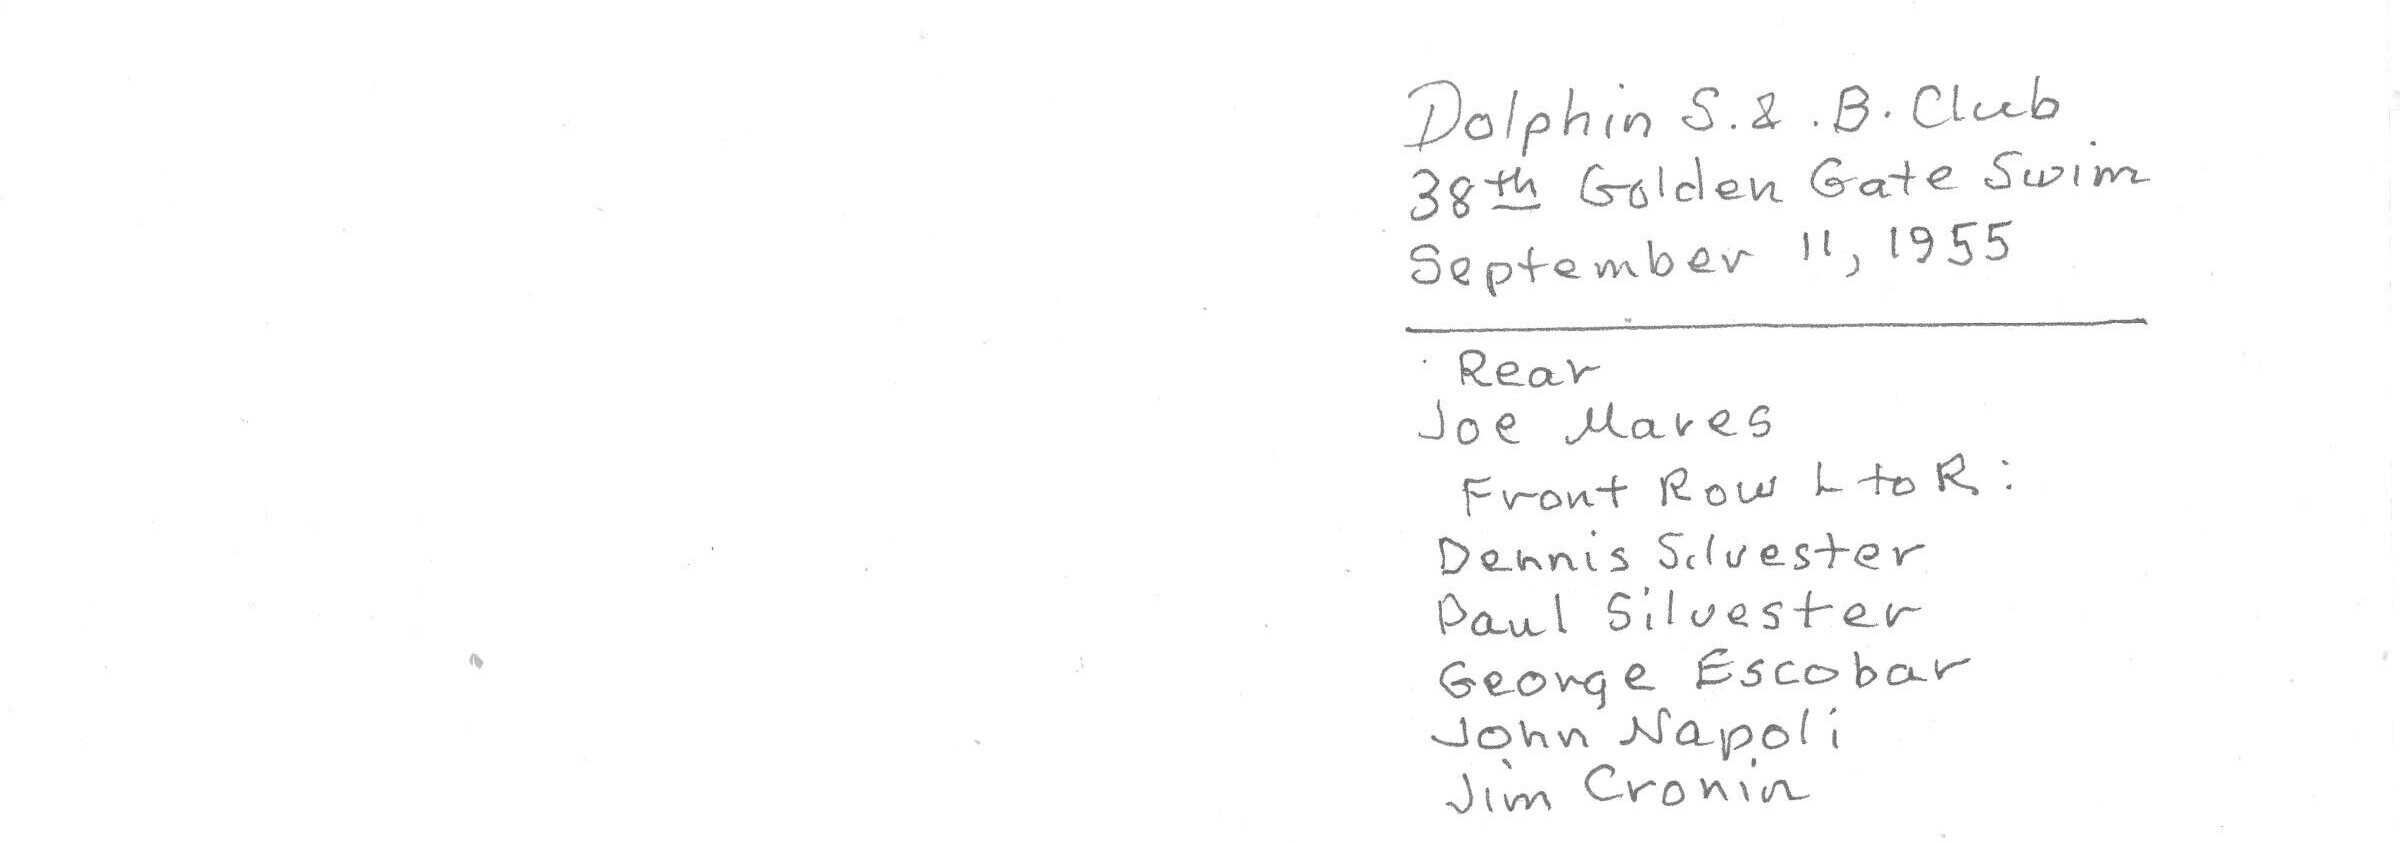 Dolphin S. & . B. Club
38th Golden Gate Swim
September 11, 1955
Rear
Joe Mares
Front Row L to R:
Dennis Silvester
Paul Silvester
George Escobar
John Napoli
Jim Cronin